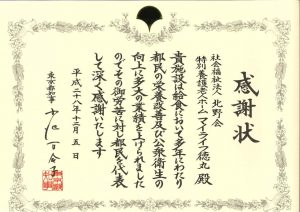 感謝状
社会福祉法人 北野会
特別養護老人ホームマイライフ徳丸 殿
貴施設は給食において多年にわたり
都民の栄養改善及び公衆衛生の
向上に多大の業績を上げられました
のでその御労苦に対し都民を代表
して深く感謝いたします
平成二十八年十一月五日
東京都知事 小池百合子